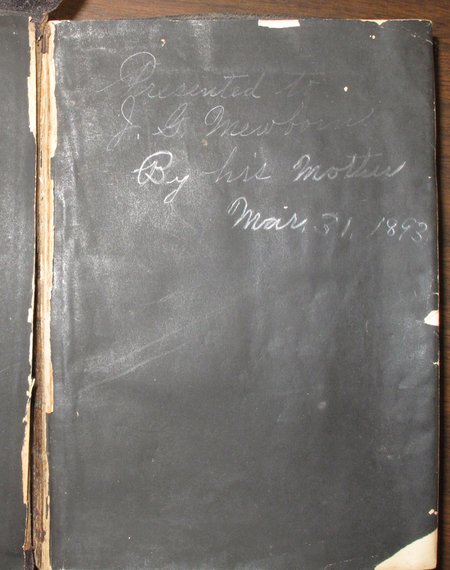 Presented to
J. G. Mewborne
By his Mother
Mar. 31, 1893